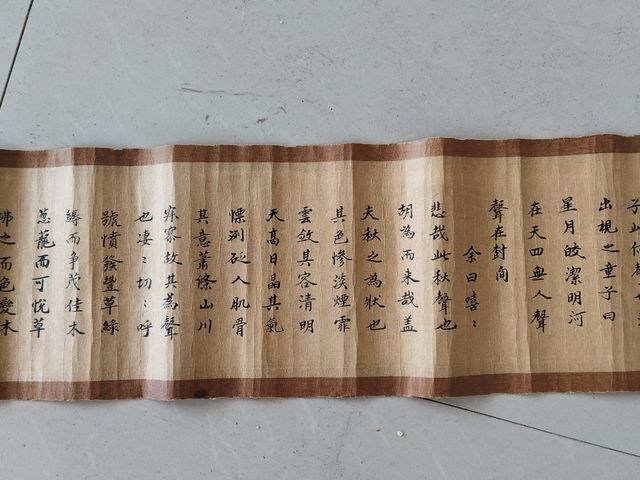 子此何
出視之童子曰
星月皎潔明河
在天四無人聲
聲在封間
余曰嘻〻
悲哉此秋聲也
胡為而来哉盖
夫秋之為狀也
其色慘淡煙霏
雲斂其容清明
天高日晶其氣
慄冽砭人肌骨
其意蕭條山川
寂寥故其為聲
也凄〻切〻呼
號憤發豐草綠
縟而争茂佳木
葱蘢而可悦草
拂之而色變木